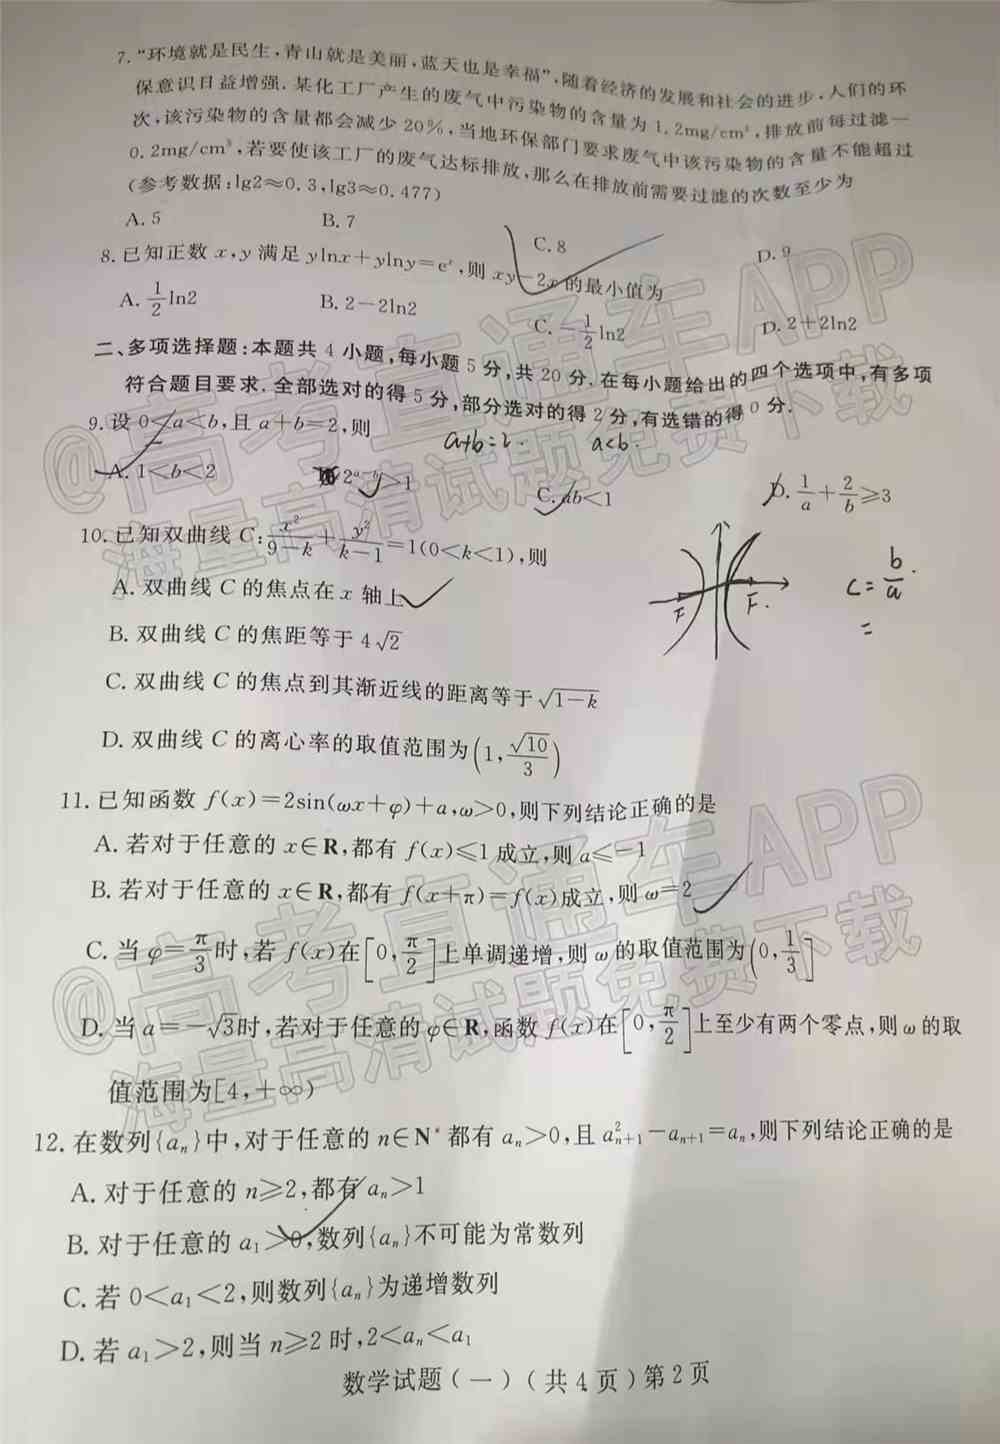 7.“环境就是民生,青山就是美丽,蓝天也是幸福”,随着经济的发展和社会的进步,人们的环
保意识日益增强.某化工厂产生的废气中污染物的含量为1.2mg/cm³,排放前每过滤一
次,该污染物的含量都会减少20%,当地环保部门要求废气中该污染物的含量不能超过
0.2mg/cm³,若要使该工厂的废气达标排放,那么在排放前需要过滤的次数至少为
(参考数据:lg2≈0.3,lg3≈0.477)
A.5 B.7 C.8 D.9
8.已知正数x,y满足ylnx+ylny=eˣ,则xy-2x的最小值为
A.1/2 ln2 B.2-2ln2 C.-1/2 ln2 D.2+2ln2
二、多项选择题:本题共4小题,每小题5分,共20分.在每小题给出的四个选项中,有多项
符合题目要求.全部选对的得5分,部分选对的得2分,有选错的得0分.
9.设0<a<b,且a+b=2,则
a+b=2. a<b.
A.1<b<2 2ᵃ⁻ᵇ>1 C.ab<1 D.1/a+2/b≥3
10.已知双曲线C:x²/(9-k)+y²/(k-1)=1(0<k<1),则
A.双曲线C的焦点在x轴上
B.双曲线C的焦距等于4√2
C.双曲线C的焦点到其渐近线的距离等于√(1-k)
D.双曲线C的离心率的取值范围为(1,√10/3)
F. F.
C=b/a.
=
11.已知函数f(x)=2sin(ωx+φ)+a,ω>0,则下列结论正确的是
A.若对于任意的x∈R,都有f(x)≤1成立,则a≤-1
B.若对于任意的x∈R,都有f(x+π)=f(x)成立,则ω=2
C.当φ=π/3时,若f(x)在[0,π/2]上单调递增,则ω的取值范围为(0,1/3]
D.当a=-√3时,若对于任意的φ∈R,函数f(x)在[0,π/2]上至少有两个零点,则ω的取
值范围为[4,+∞)
12.在数列{aₙ}中,对于任意的n∈N*都有aₙ>0,且a²ₙ₊₁-aₙ₊₁=aₙ,则下列结论正确的是
A.对于任意的n≥2,都有aₙ>1
B.对于任意的a₁>0,数列{aₙ}不可能为常数列
C.若0<a₁<2,则数列{aₙ}为递增数列
D.若a₁>2,则当n≥2时,2<aₙ<a₁
数学试题(一)(共4页)第2页
@高考直通车APP
海量高清试题免费下载
@高考直通车APP
海量高清试题免费下载